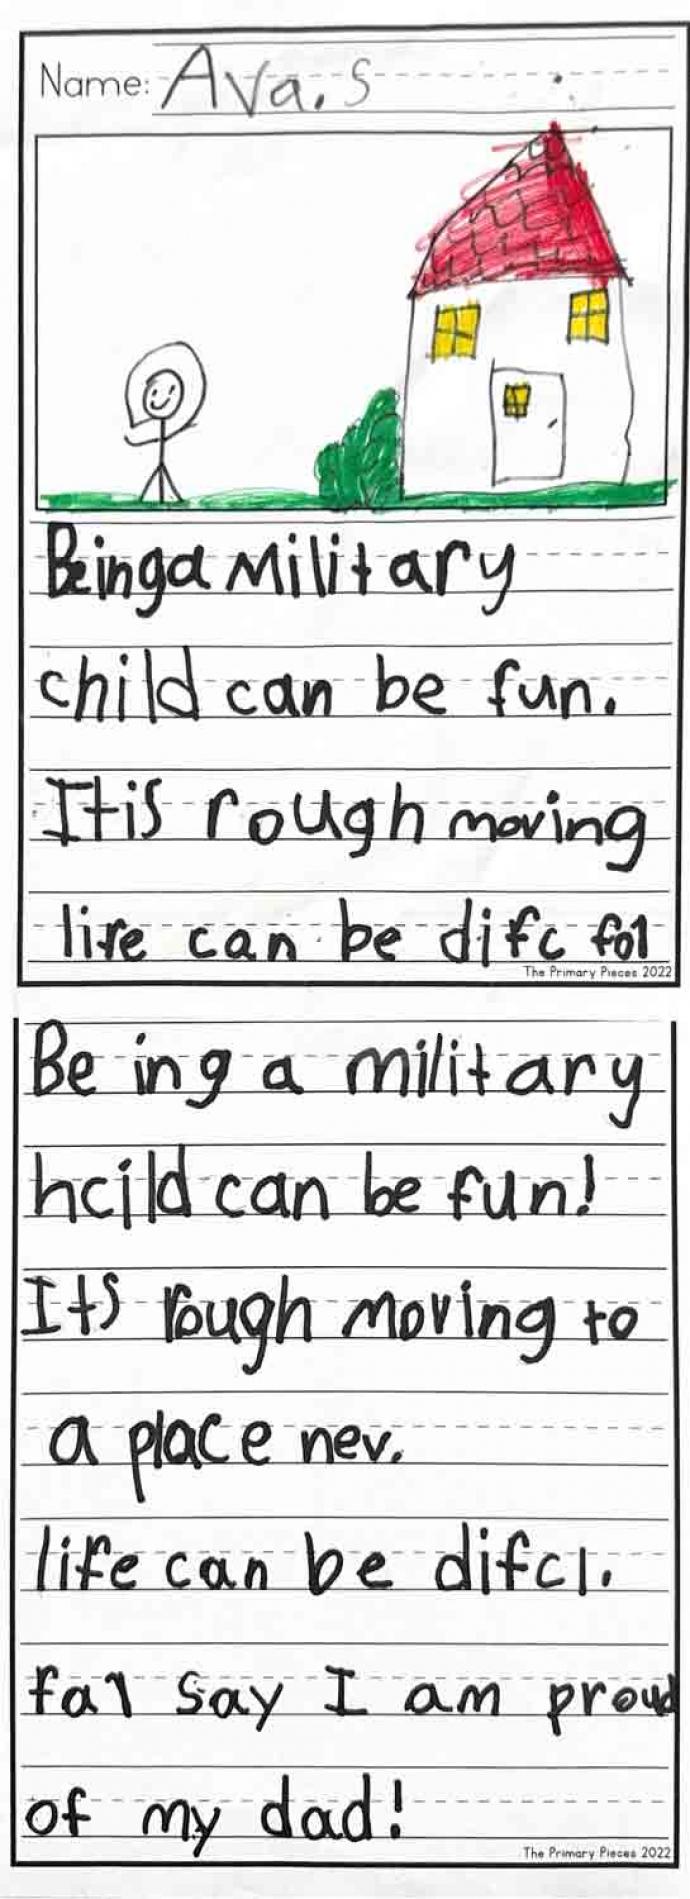 Name: Ava. S
Being a military
child can be fun.
It is rough moving
life can be difc fol
The Primary Pieces 2022
Be ing a military
hcild can be fun!
Its rough moving to
a place nev.
life can be difcl.
fal say I am proud
of my dad!
The Primary Pieces 2022